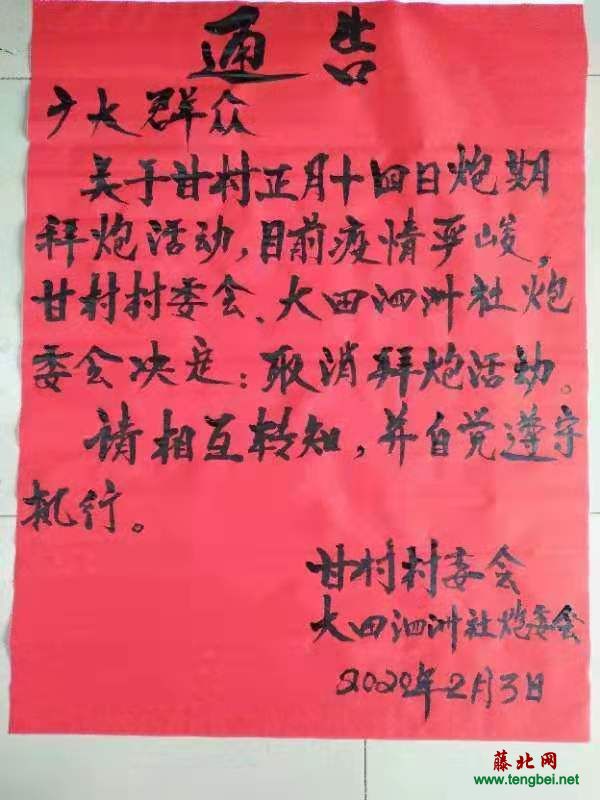 通告
广大群众
关于甘村正月十四日炮期
拜炮活动,目前疫情严峻,
甘村村委会、大田泗洲社炮
委会决定:取消拜炮活动。
请相互转知,并自觉遵守
执行。
甘村村委会
大田泗洲社炮委会
2020年2月3日
藤北网
www.tengbei.net